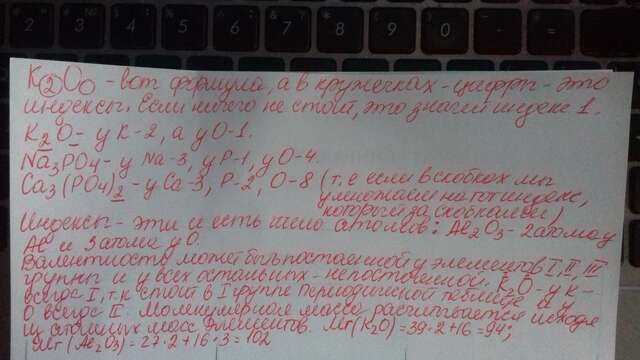 2 3 4 5 6 7 8 9 0 -
K2O - вот формула, а в кружечках - цифры - это
индексы. Если ничего не стоит, это значит индекс 1.
K2O - у K-2, а у O-1.
Na3PO4 - у Na-3, у P-1, у O-4.
Ca3(PO4)2 - у Ca-3, P-2, O-8 (т.е если в скобках мы
умножаем на тот индекс,
который за скобками)
Индексы - эти и есть число атомов: Al2O3 - 2 атома у
Al и 3 атома у O.
Валентность может быть постоянной у элементов I, II, III
группы и у всех остальных - непостоянной. K2O - у K -
всегда I, т.к стоит в I группе периодической таблице а у
O всегда II. Молекулярная масса расчитывается исходя
из атомных масс элементов. Mr(K2O) = 39·2+16=94;
Mr(Al2O3) = 27·2+16·3=102